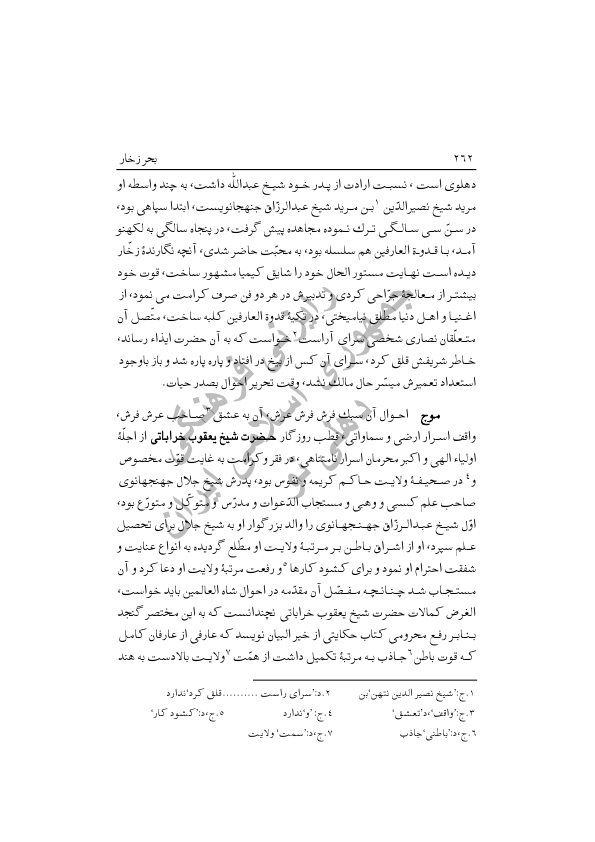 ۲۶۲ بحر زخار
دهلوی است، نسبت ارادت از پدر خود شیخ عبدالله داشت، به چند واسطه او
مرید شیخ نصیرالدّین ۱بن مرید شیخ عبدالرزاق جنهجانویست، ابتدا سپاهی بود،
در سنّ سی سالگی ترك نموده مجاهده پیش گرفت، در پنجاه سالگی به لکهنو
آمد، با قدوة العارفین هم سلسله بود، به محبّت حاضر شدی، آنچه نگارندهٔ زخّار
دیده است نهایت مستور الحال خود را شایق کیمیا مشهور ساخت، قوت خود
بیشتر از معالجهٔ جرّاحی کردی و تدبیرش در هر دو فن صرف کرامت می نمود، از
اغنیا و اهل دنیا مطلق نیامیختی، در تکیهٔ قدوة العارفین کلبه ساخت، متّصل آن
متعلّقان نصاری شخصی سرای آراست۲ خواست که به آن حضرت ایذاء رساند،
خاطر شریفش قلق کرد، سرای آن کس از بیخ در افتاد و پاره پاره شد و باز باوجود
استعداد تعمیرش میسّر حال مالك نشد، وقت تحریر احوال بصدر حیات.
موج احوال آن سبك فرش فرش عرش، آن به عشق۳ صاحب عرش فرش،
واقف اسرار ارضی و سماواتی، قطب روزگار حضرت شیخ یعقوب خراباتی از اجلّهٔ
اولیاء الهی و اکبر محرمان اسرار نامتناهی، در فقر و کرامت به غایت قوّت مخصوص
و۴ در صحیفهٔ ولایت حاکم کریمه و نفوس بود، پدرش شیخ جلال جهنجهانوی
صاحب علم کسبی و وهبی و مستجاب الدّعوات و مدرّس و متوکّل و متورّع بود،
اوّل شیخ عبدالرزّاق جهنجهانوی را والد بزرگوار او به شیخ جلال برای تحصیل
علم سپرد، او از اشراق باطن بر مرتبهٔ ولایت او مطّلع گردیده به انواع عنایت و
شفقت احترام او نمود و برای کشود کارها۵ و رفعت مرتبهٔ ولایت او دعا کرد و آن
مستجاب شد چنانچه مفصّل آن مقدّمه در احوال شاه العالمین باید خواست،
الغرض کمالات حضرت شیخ یعقوب خراباتی نچندانست که به این مختصر گنجد
بنابر رفع محرومی کتاب حکایتی از خیر البیان نویسد که عارفی از عارفان کامل
که قوت باطن۶ جاذب به مرتبهٔ تکمیل داشت از همّت۷ ولایت بالادست به هند
۱.ج:'شیخ نصیر الدین نتهن'بن ۲.د:'سرای راست ..........قلق کرد'ندارد
۳.ج:'واقف'،د'تعشق' ۴.ج: 'و'ندارد ۵.ج،د:'کشود کار'
۶.ج،د:'باطنی'جاذب ۷.ج،د:'سمت' ولایت
رایزنی فرهنگی
جمهوری اسلامی ایران
دهلی نو